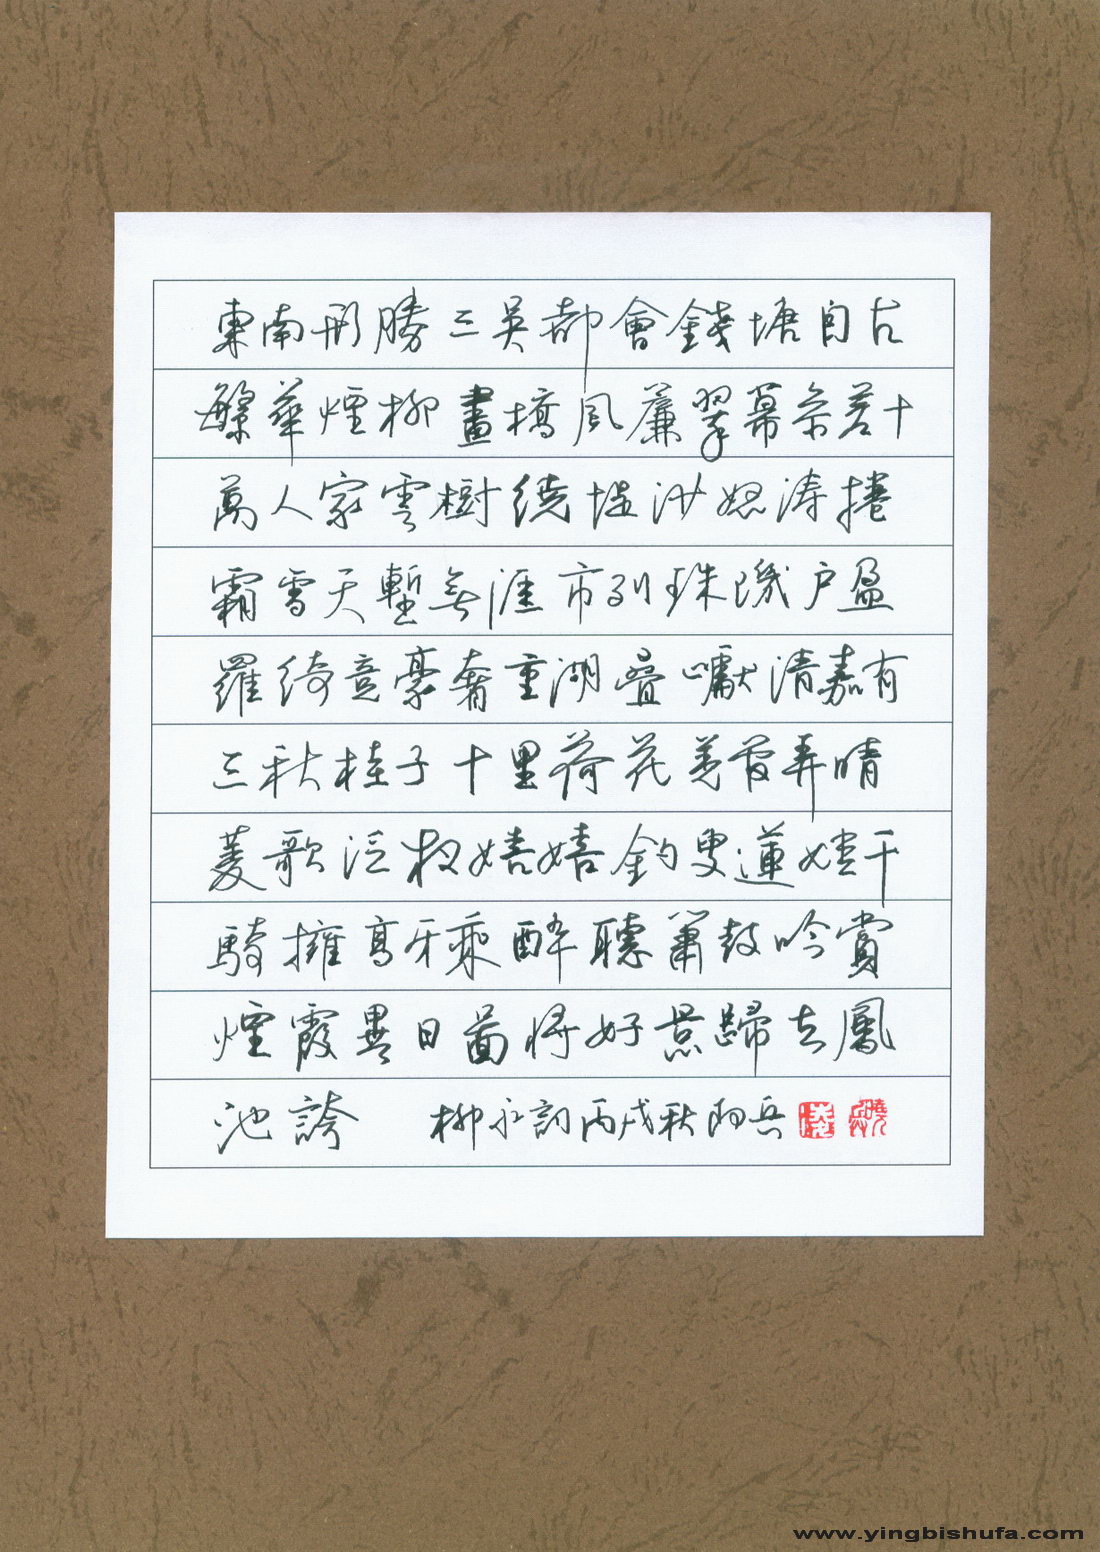 東南形勝三吳都會錢塘自古
繁華煙柳畫橋風簾翠幕參差十
萬人家雲樹繞堤沙怒涛捲
霜雪天塹無涯市列珠璣户盈
羅綺競豪奢重湖疊巘清嘉有
三秋桂子十里荷花羌管弄晴
菱歌泛夜嬉嬉釣叟蓮娃千
騎擁高牙乘醉聽簫鼓吟賞
煙霞異日圖將好景歸去鳳
池誇 柳永詞丙戌秋 兵
www.yingbishufa.com